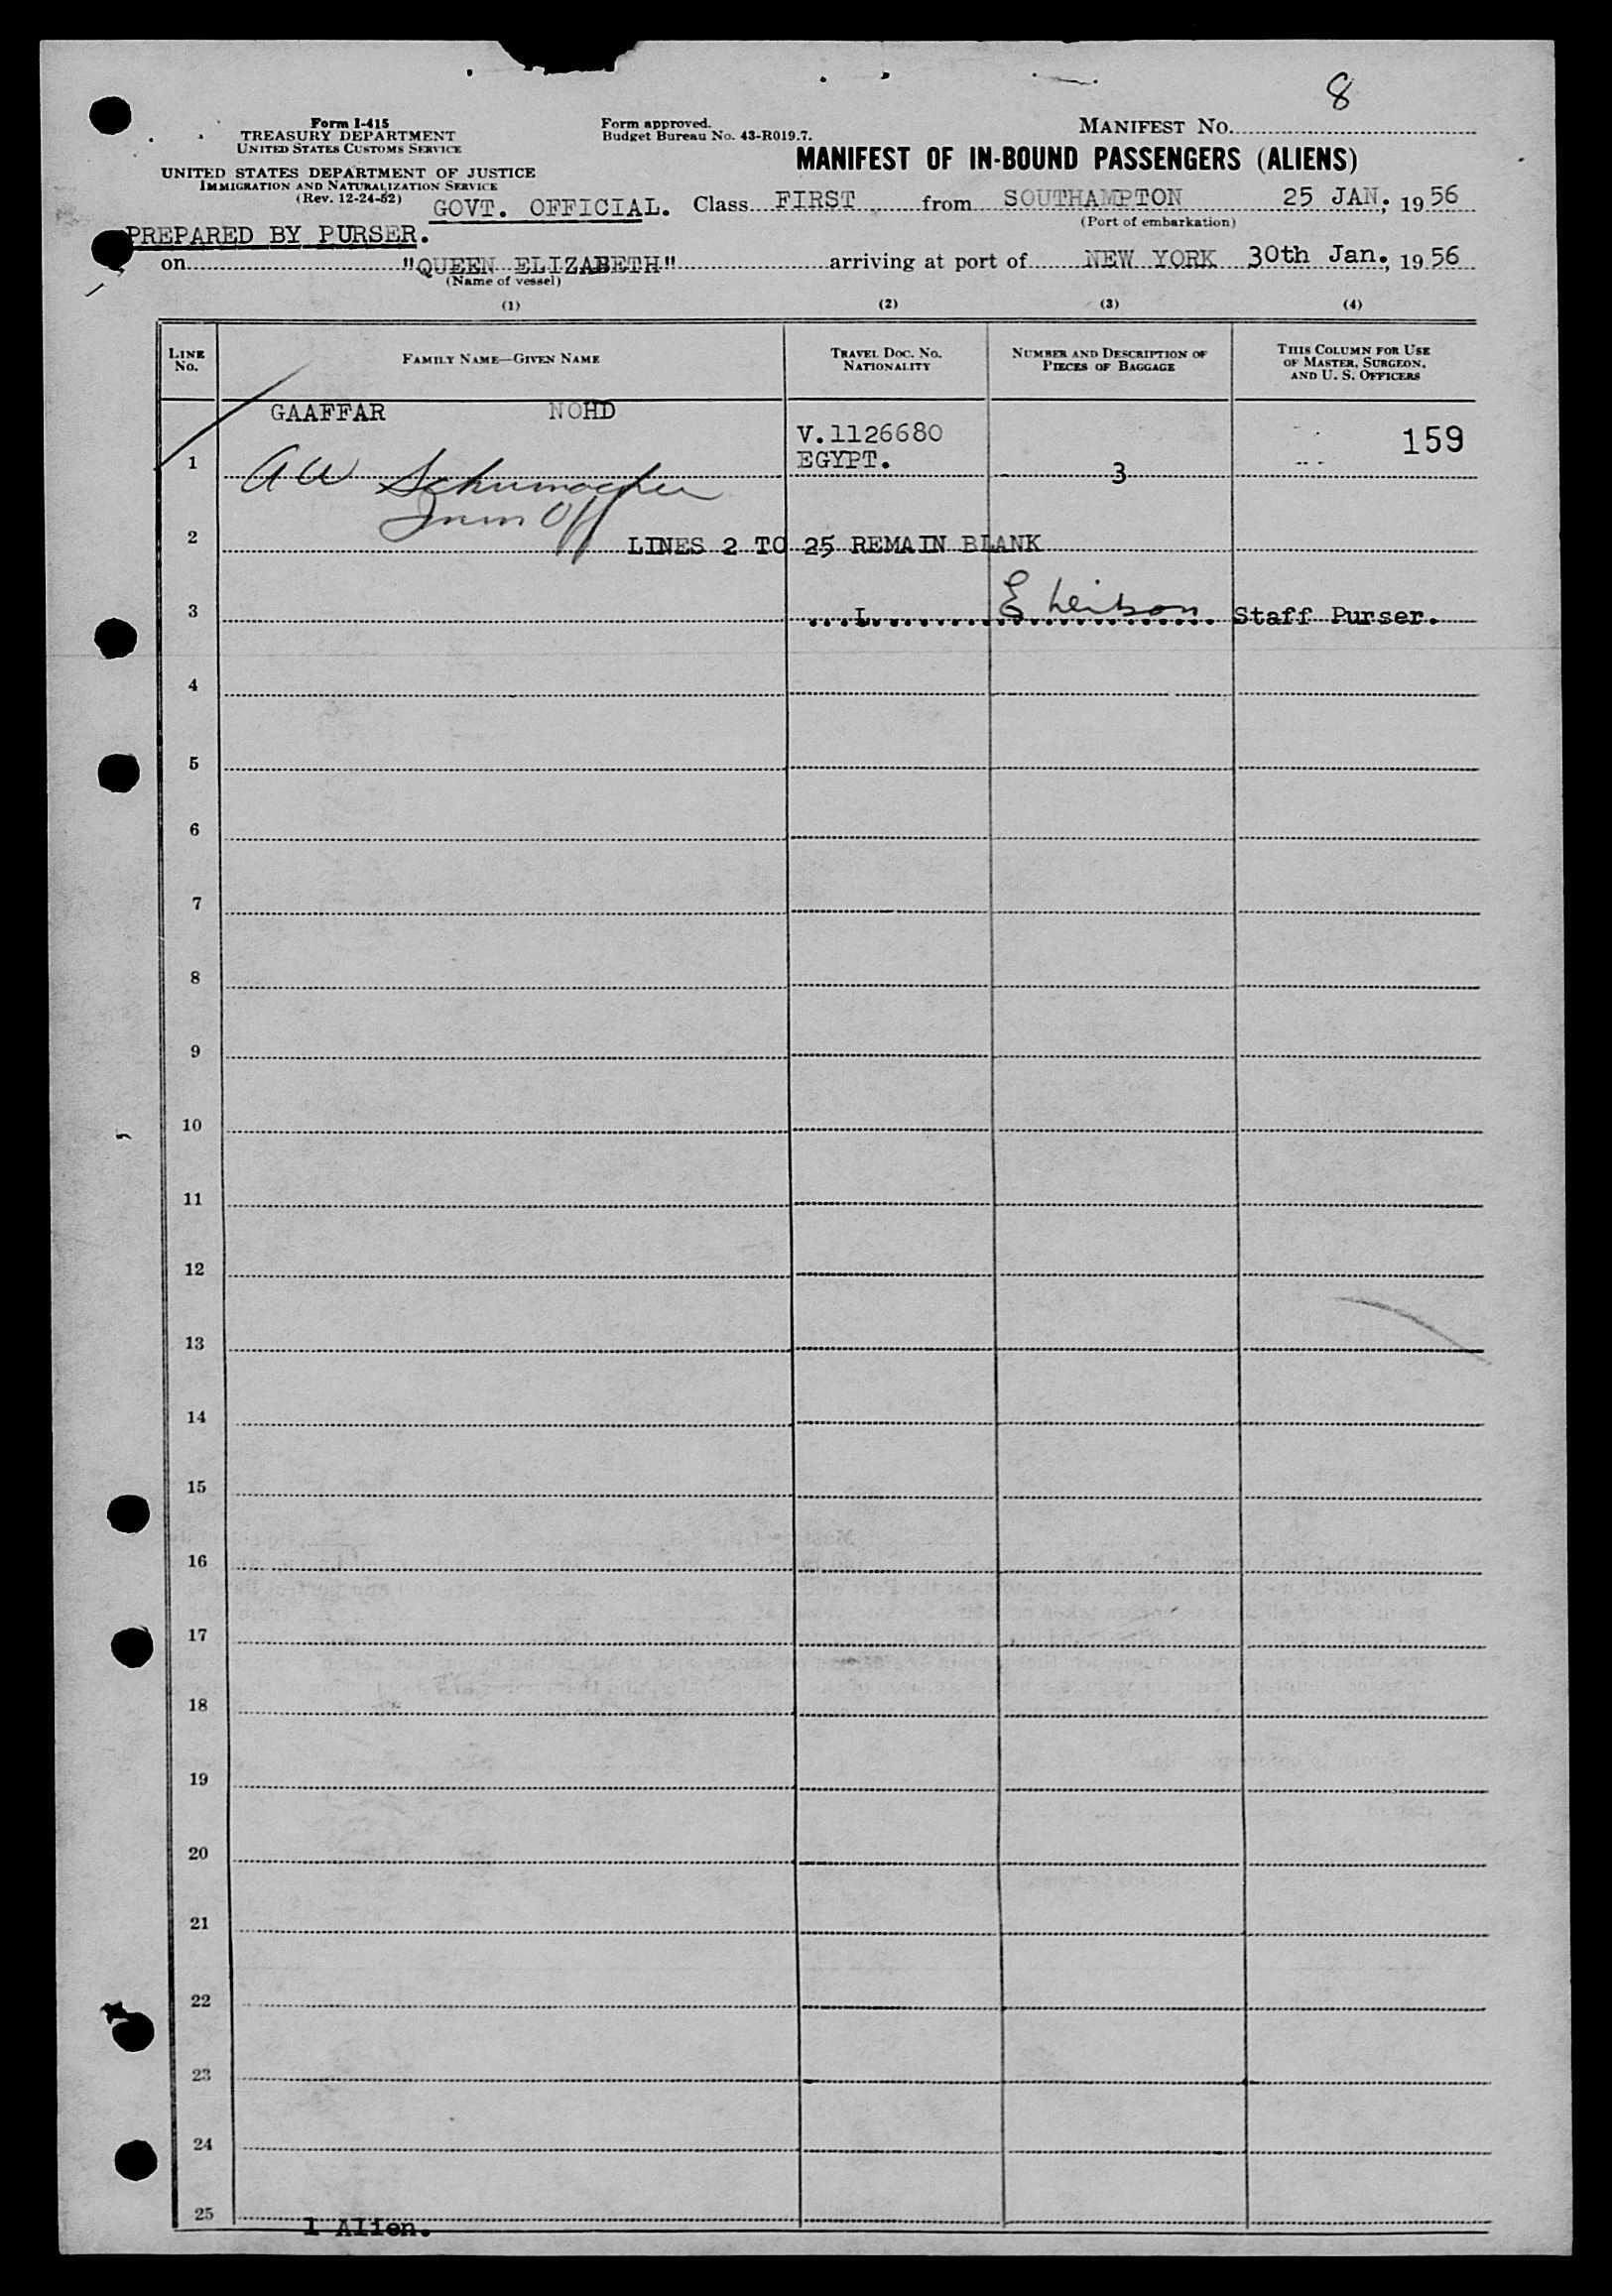 8
Form I-415
TREASURY DEPARTMENT
UNITED STATES CUSTOMS SERVICE
UNITED STATES DEPARTMENT OF JUSTICE
IMMIGRATION AND NATURALIZATION SERVICE
(Rev. 12-24-52)
Form approved.
Budget Bureau No. 43-R019.7.
MANIFEST NO.
MANIFEST OF IN-BOUND PASSENGERS (ALIENS)
GOVT. OFFICIAL. Class FIRST from SOUTHAMPTON 25 JAN, 1956
(Port of embarkation)
PREPARED BY PURSER.
on "QUEEN ELIZABETH" arriving at port of NEW YORK 30th Jan., 1956
(Name of vessel)
(1) (2) (3) (4)
LINE NO. FAMILY NAME—GIVEN NAME TRAVEL DOC. NO. NATIONALITY NUMBER AND DESCRIPTION OF PIECES OF BAGGAGE THIS COLUMN FOR USE OF MASTER, SURGEON, AND U. S. OFFICERS
GAAFFAR NOHD
V.1126680 159
1 EGYPT. 3
A W Schumacher
Imm Off
2 LINES 2 TO 25 REMAIN BLANK
3 L E Staff Purser.
4
5
6
7
8
9
10
11
12
13
14
15
16
17
18
19
20
21
22
23
24
25
1 Alien.